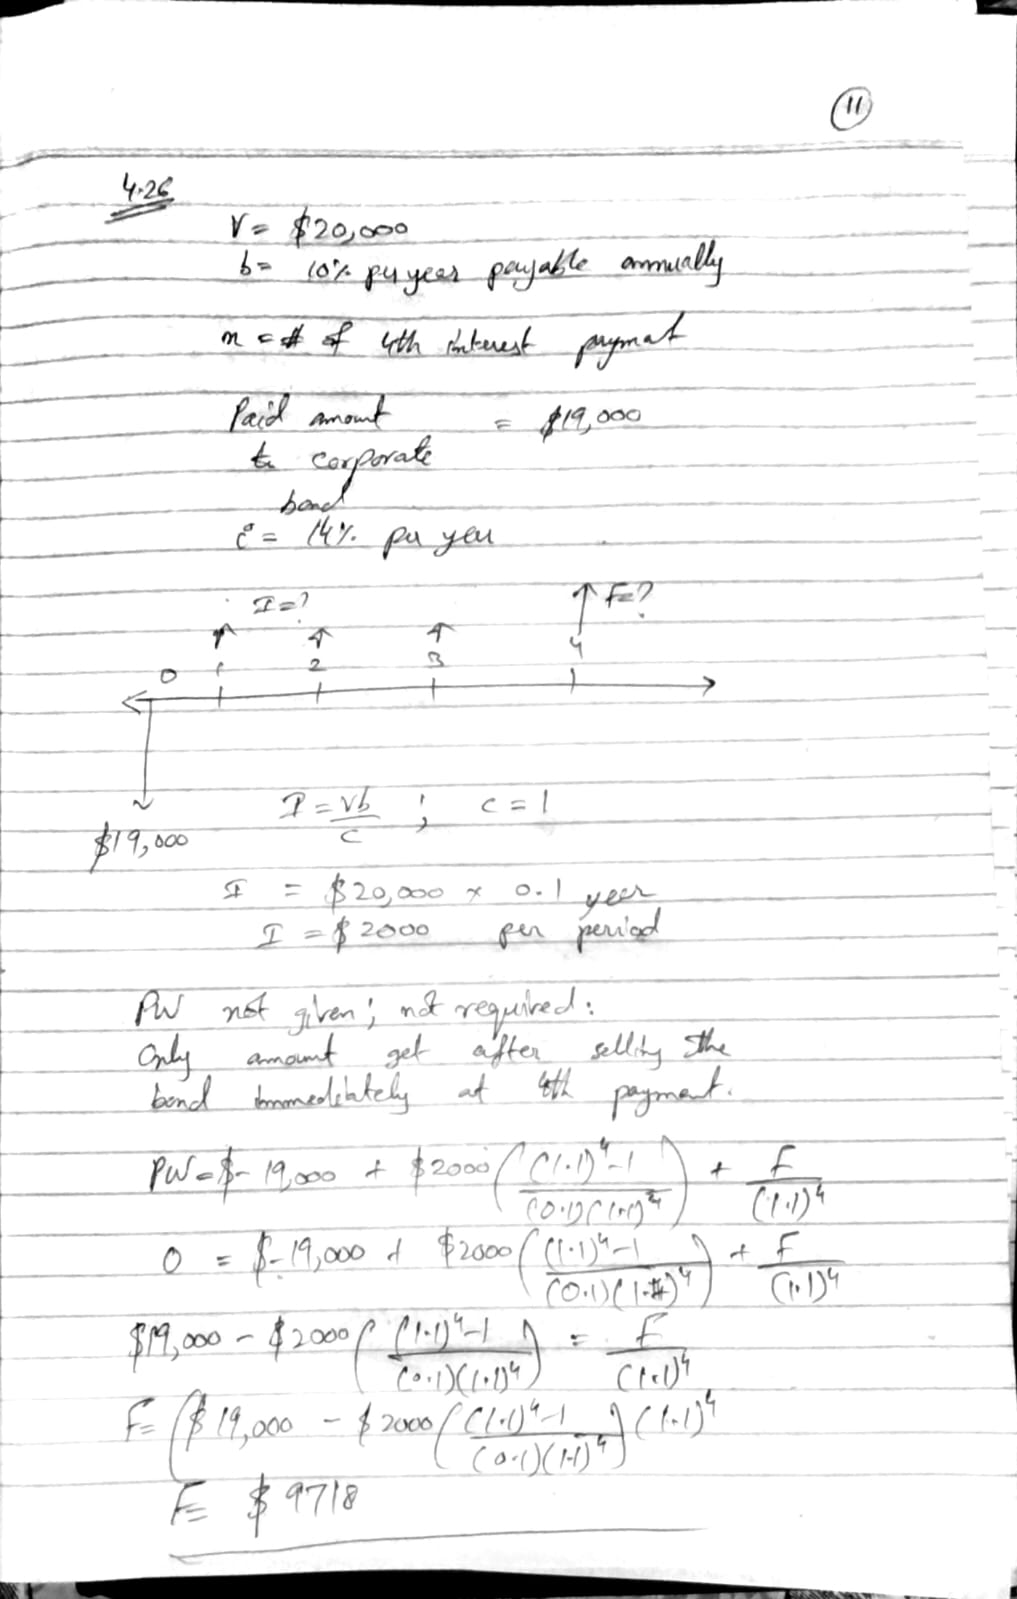 11
4.26
V = $20,000
b = 10% per year payable annually
n = # of 4th interest payment
Paid amount = $19,000
to corporate
bond
i = 14% per year
I=? F=?
0 1 2 3 4
$19,000
I = Vb/c ; c = 1
I = $20,000 x 0.1 year
I = $2000 per period
PW not given; not required:
Only amount get after selling the
bond immediately at 4th payment.
PW = $-19,000 + $2000 ( (1.1)^4-1 / (0.1)(1.1)^4 ) + F / (1.1)^4
0 = $-19,000 + $2000 ( (1.1)^4-1 / (0.1)(1.1)^4 ) + F / (1.1)^4
$19,000 - $2000 ( (1.1)^4-1 / (0.1)(1.1)^4 ) = F / (1.1)^4
F = ( $19,000 - $2000 ( (1.1)^4-1 / (0.1)(1.1)^4 ) (1.1)^4
F = $ 9718